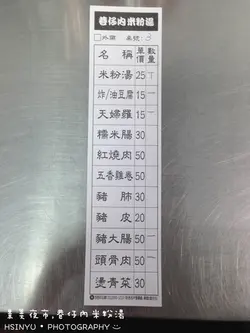 巷仔內米粉湯
□外帶 桌號: 3
名稱 單價 數量
米粉湯 25 一
炸/油豆腐 15 一
天婦羅 15 一
糯米腸 30
紅燒肉 50
五香雞卷 50
豬肺 30
豬皮 20
豬大腸 50 一
頭骨肉 50 一
燙青菜 30
HSINYU • PHOTO